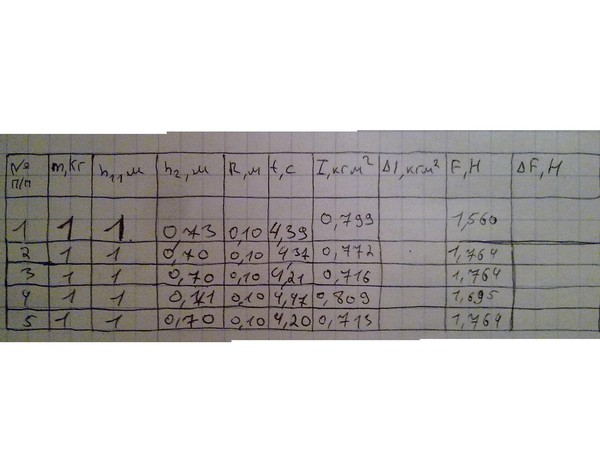 № п/п m,кг h₁,м h₂,м R,м t,с I,кгм² ΔI,кгм² F,Н ΔF,Н
1 1 1 0,73 0,10 4,39 0,799 1,560
2 1 1 0,70 0,10 4,37 0,772 1,764
3 1 1 0,70 0,10 4,21 0,716 1,764
4 1 1 0,71 0,10 4,47 0,809 1,695
5 1 1 0,70 0,10 4,20 0,713 1,764